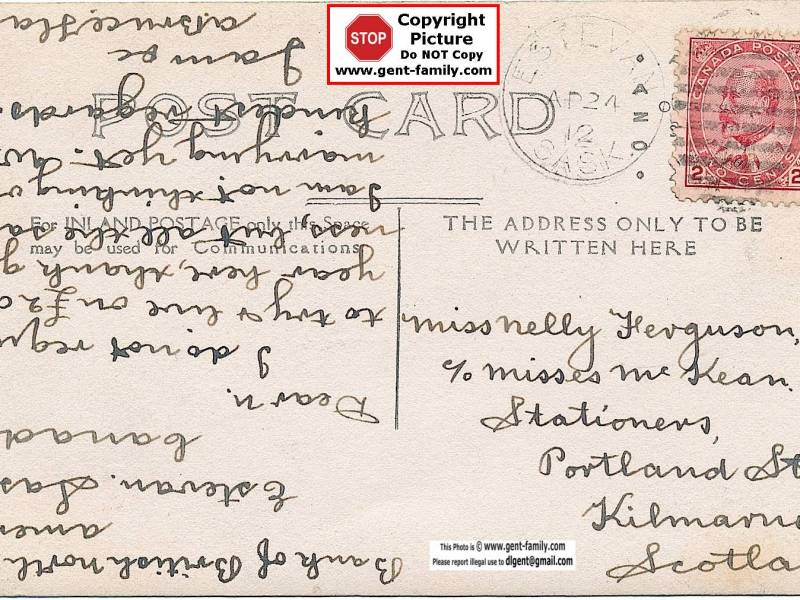 STOP
Copyright
Picture
Do NOT Copy
www.gent-family.com
POST CARD
ESTEVAN
AP 24
12
SASK.
CANADA POSTAGE
2 CENTS 2
For INLAND POSTAGE only this Space
may be used for Communications
THE ADDRESS ONLY TO BE
WRITTEN HERE
Miss Nelly Ferguson,
c/o Misses McKean.
Stationers,
Portland St
Kilmarn
Scotla
Bank of British North
Amer
Estevan. Sas
Canad
Dear N.
I do not requ
to try & live on £2
year here, thank g
ness, but all the sa
I am not thinking o
marrying yet. Wi
kindest regards
I am
A Bruce
This Photo is © www.gent-family.com
Please report illegal use to dlgent@gmail.com